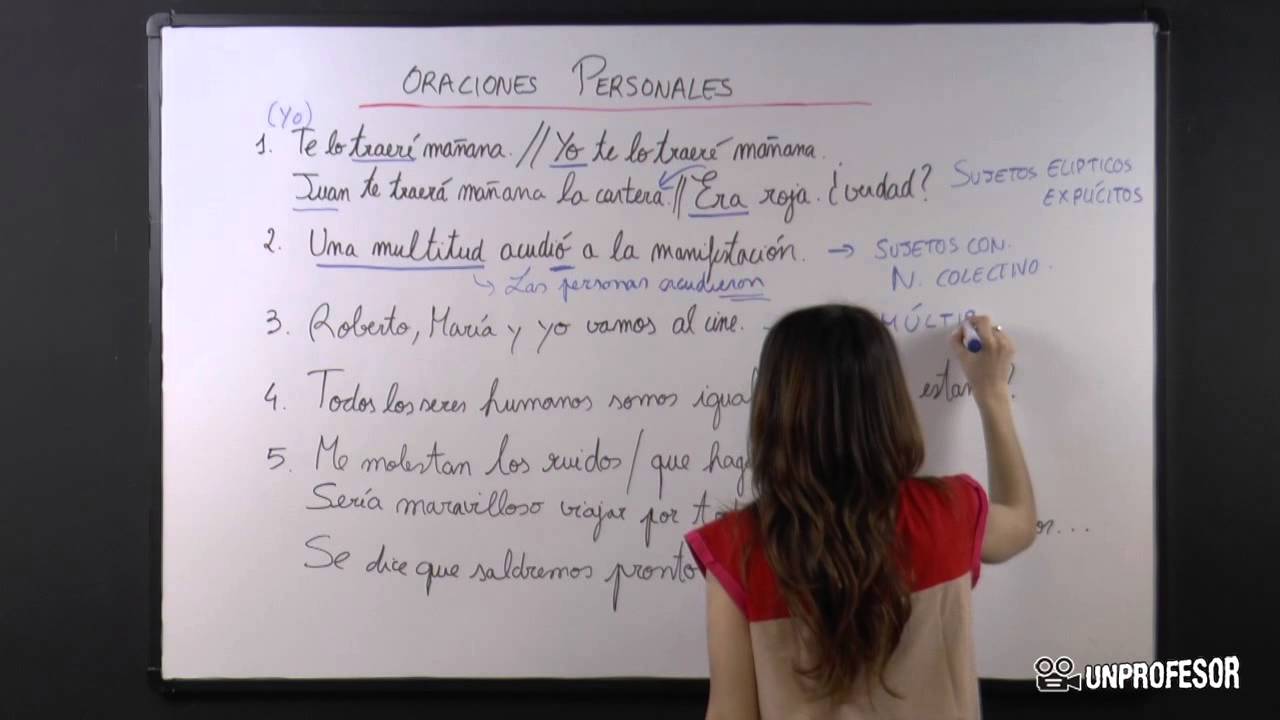 ORACIONES PERSONALES
(Yo)
1. Te lo traeré mañana. // Yo te lo traeré mañana.
Juan te traerá mañana la cartera. // Era roja. ¿verdad?
SUJETOS ELIPTICOS
EXPLÍCITOS
2. Una multitud acudió a la manifestación. → SUJETOS CON.
N. COLECTIVO.
↳ Las personas acudieron
3. Roberto, María y yo vamos al cine.
MÚLTIP
4. Todos los seres humanos somos igual
5. Me molestan los ruidos / que hag
Sería maravilloso viajar por
Se dice que saldremos pronto
UNPROFESOR